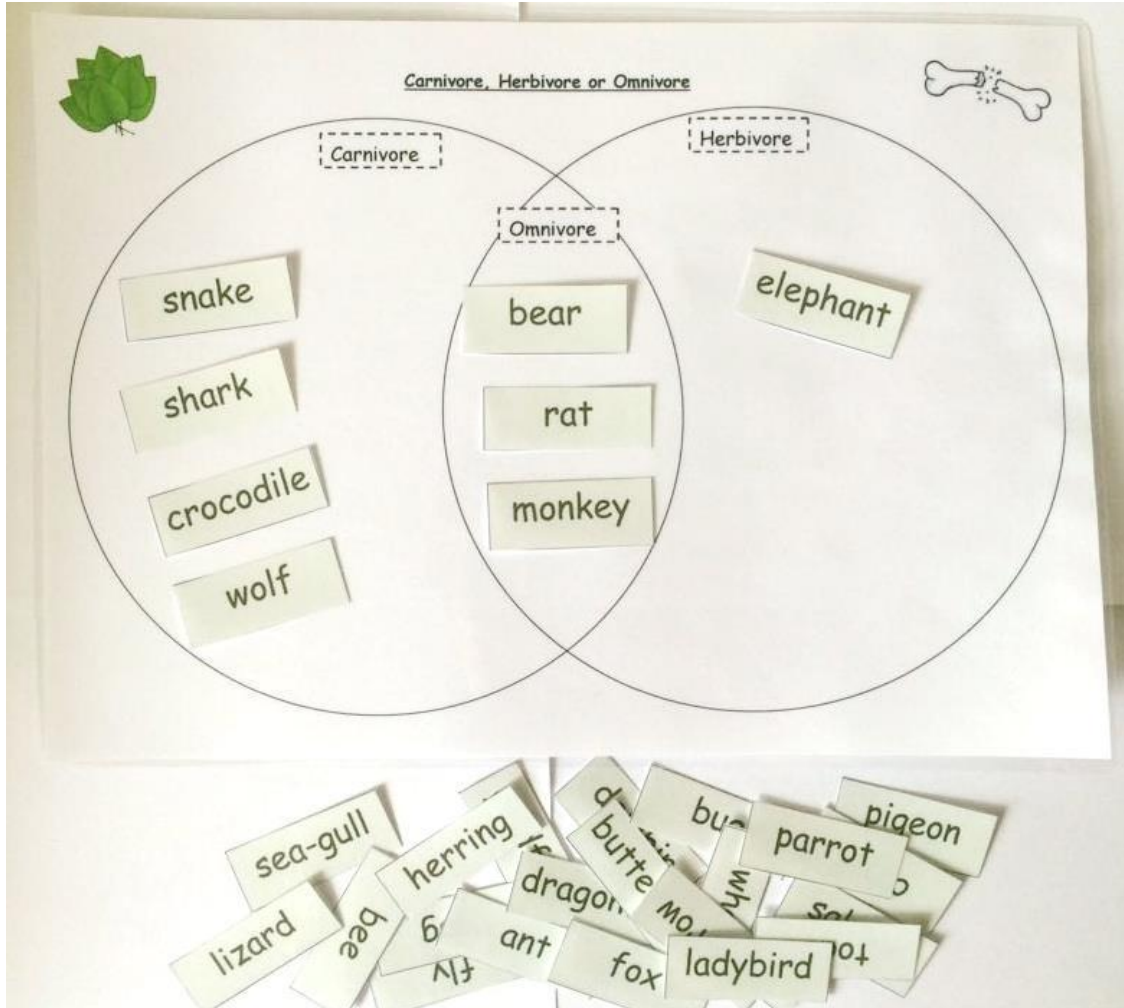 Carnivore, Herbivore or Omnivore
Carnivore
Herbivore
Omnivore
snake
shark
crocodile
wolf
bear
rat
monkey
elephant
sea-gull
herring
lizard
bee
fly
ant
fox
ladybird
parrot
pigeon